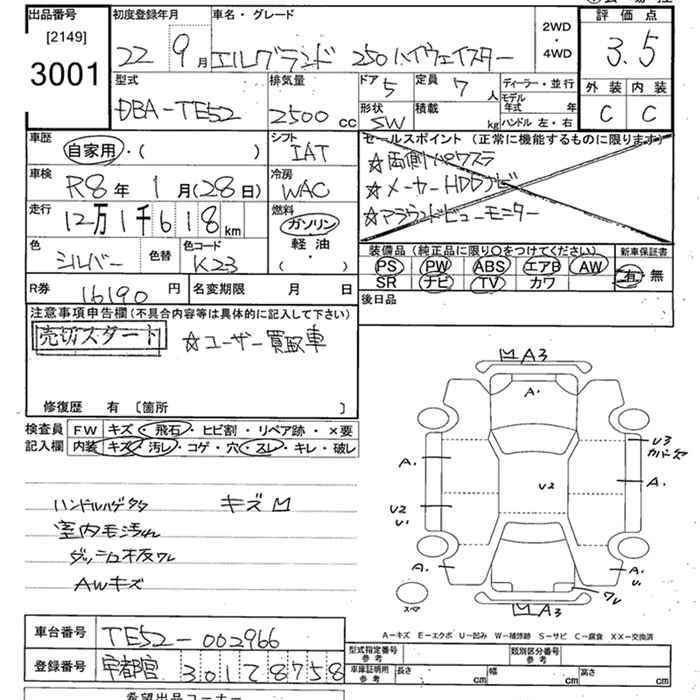 出品番号
[2149]
3001
初度登録年月
22 9月
車名・グレード
エルグランド 250ハイウェイスター
2WD
・
4WD
評価点
3.5
外装 内装
C C
型式
DBA-TE52
排気量
2500 cc
ドア 5
定員 7 人
形状 SW
積載 kg
ディーラー・並行
モデル年式 年
ハンドル 左・右
車歴
自家用・( )
シフト
IAT
車検
R8年 1月(28日)
冷房
WAC
走行
12万1千618km
燃料
ガソリン
軽油
( )
色
シルバー
色替
色コード
K23
R券 16190円
名変期限 月 日
セールスポイント (正常に機能するものに限ります)
☆両側パワスラ
☆メーカーHDDナビ
☆アラウンドビューモニター
装備品 (純正品に限り○をつけてください)
PS PW ABS エアB AW
SR ナビ TV カワ
新車保証書
有 無
後日品
注意事項申告欄(不具合内容等は具体的に記入して下さい)
売切スタート ☆ユーザー買取車
修復歴 有 〔箇所 〕
検査員記入欄
FW キズ・飛石・ヒビ割・リペア跡・×要
内装 キズ・汚レ・コゲ・穴・スレ・キレ・破レ
キズM
室内モ汚れ
ダッシュ板ワレ
AWキズ
M A3
A・
A・
U2
U1
U2
U3
カバーズレ
A・
A・
A・
U1
ワレ
スペア
M A3
A―キズ E―エクボ U―凹み W―補修跡 S―サビ C―腐食 XX―交換済
車台番号 TE52-002966
登録番号 宇都宮 301 Z 8758
型式指定番号 参考
類別区分番号 参考
車庫証明用 参考
長さ cm
幅 cm
高さ cm
希望出品コーナー